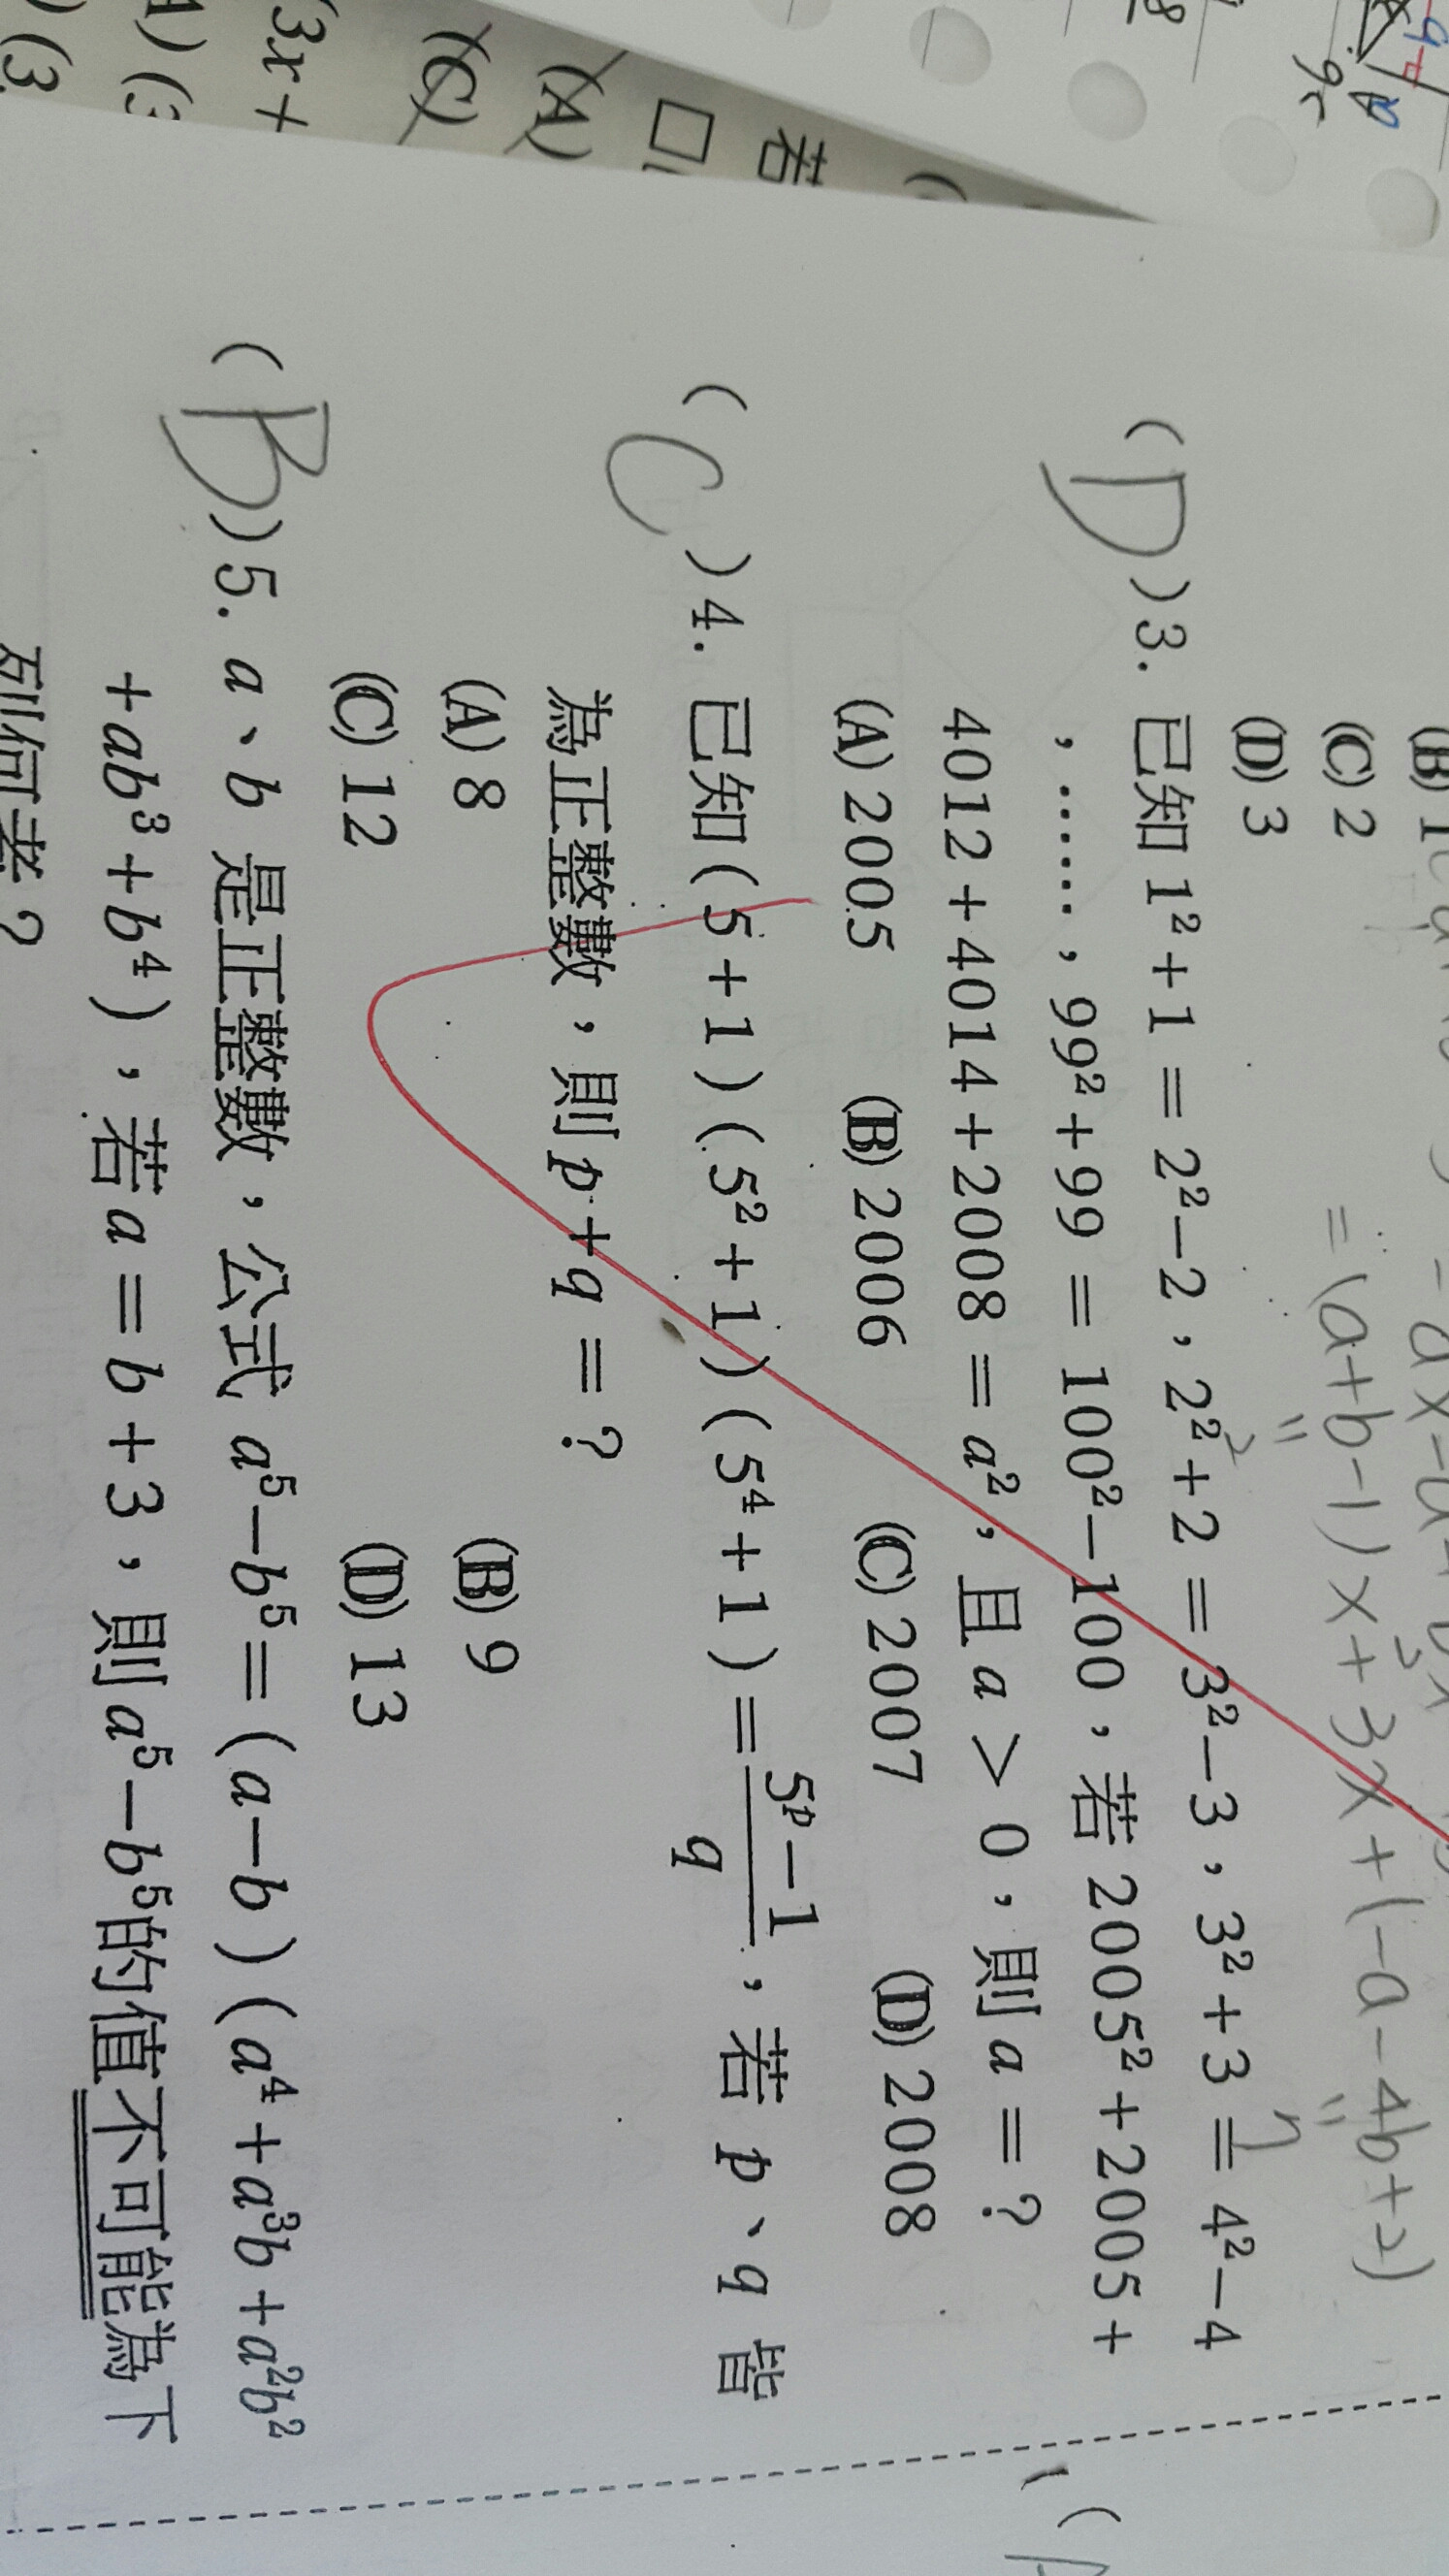 (B) 1
(C) 2
= (a+b-1)x+3x+(-a-4b+2)
(D) 3
(D) 3. 已知 1²+1 = 2²-2，2²+2 = 3²-3，3²+3 = 4²-4
，……，99²+99 = 100²-100，若 2005²+2005+
4012+4014+2008 = a²，且 a > 0，則 a = ？
(A) 2005 (B) 2006 (C) 2007 (D) 2008
(C) 4. 已知 (5+1)(5²+1)(5⁴+1) = (5ᵖ-1)/q，若 p、q 皆
為正整數，則 p+q = ？
(A) 8 (B) 9
(C) 12 (D) 13
(B) 5. a、b 是正整數，公式 a⁵-b⁵ = (a-b)(a⁴+a³b+a²b²
+ab³+b⁴)，若 a = b+3，則 a⁵-b⁵ 的值不可能為下
列何者？
若
(A)
(C)
3x+